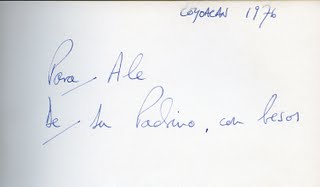 COYOACAN 1976
Para Ale
De su Padrino, con besos